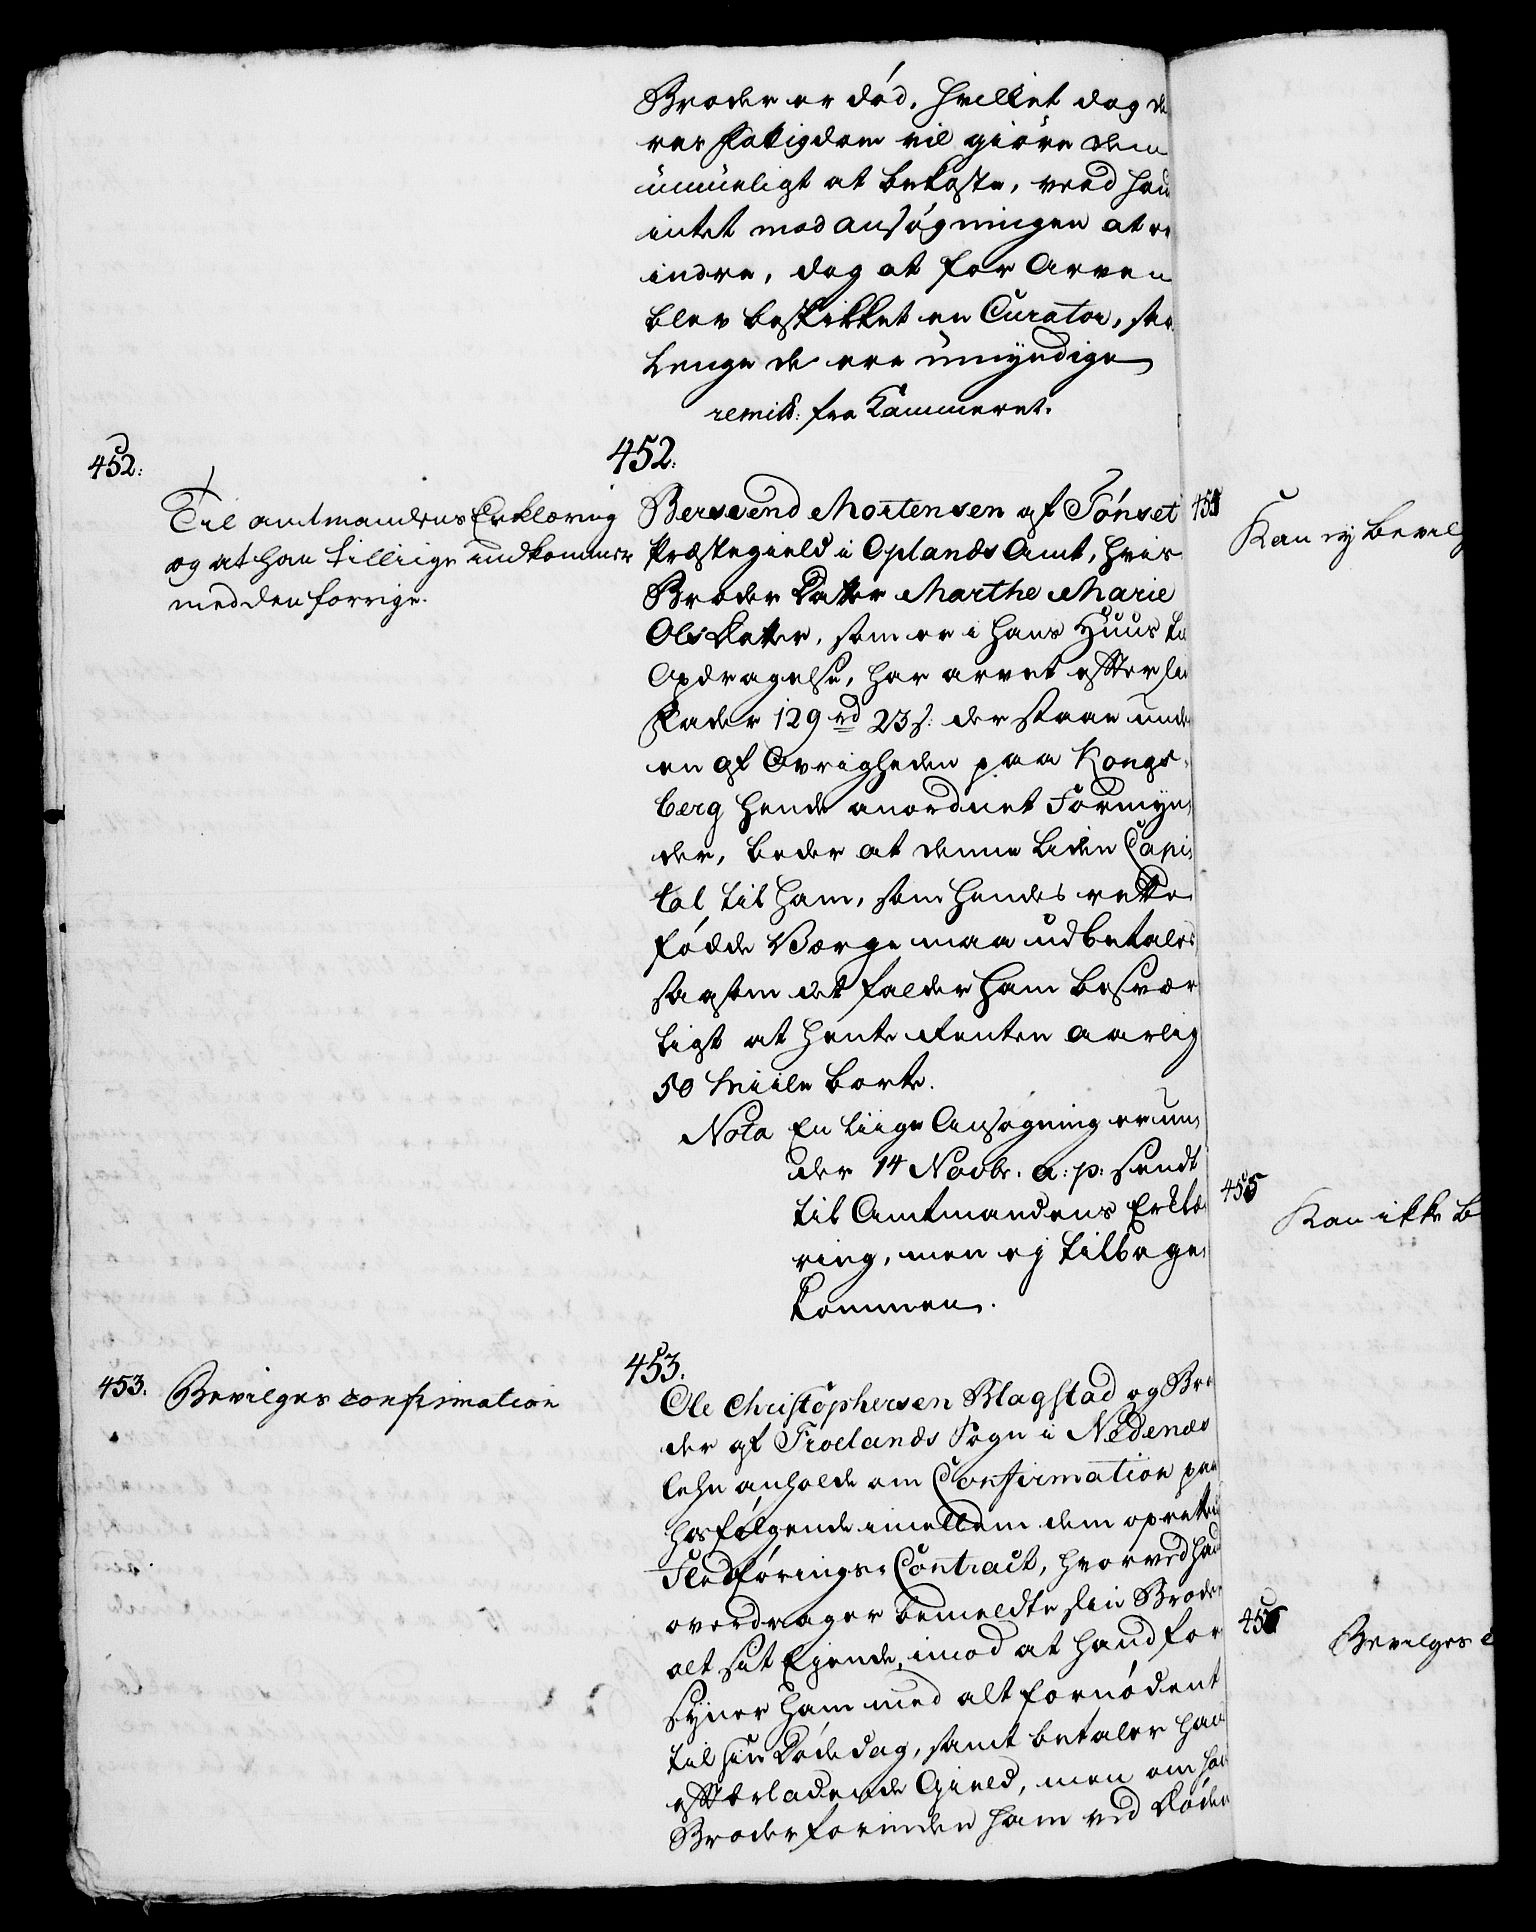 Broder er död. hvilket dog de
res Fattigdom vil giöre dem
umueligt at bekoste, veed han
intet mod ansögningen at er
indre, dog at for Arven
blev beskikket en Curator, saa
lenge de ere umyndige
remitt: fra Kammeret.
452.
452:
Til amtmandens Erklæring
og at han tilliige indkommer
med den forrige.
Bersvend Mortensen af Tönset
Præstegield i Oplands Amt, hvis
Broder Datter Marthe Marie
Ols Datter, som er i hans Huus til
Opdragelse, har arvet efter sin
Fader 129 rd 23 s: der staae under
en af Övrigheden paa Kongs-
berg hende anordnet Formyn-
der, beder at denne liden Capi-
tal til ham, som hendes rette
födde Værge maa udbetales
saasom det falder ham besvær
ligt at hente Renten aarlig
50 Miile borte.
Nota En liige Ansögning er un-
der 14 Novbr. a: p: sendt
til Amtmandens Erklæ
ring, men ej tilbage-
kommen.
453.
453. Bevilges confirmation
Ole Christophersen Blagstad og Bro
der af Froelands Sogn i Nedenæs
lehn anholde om Confirmation paa
hosfölgende imellem dem oprettede
Fledförings-Contract, hvorved han
overdrager bemeldte sin Broder
alt sit Ejende, imod at hand for
syner ham med alt fornödent
til sin Dödedag, samt betaler hans
efterladende Gield, men om hans
Broder forinden ham ved Döden
454
Kan ej bevilg
455
Kan ikke b
456
Bevilges